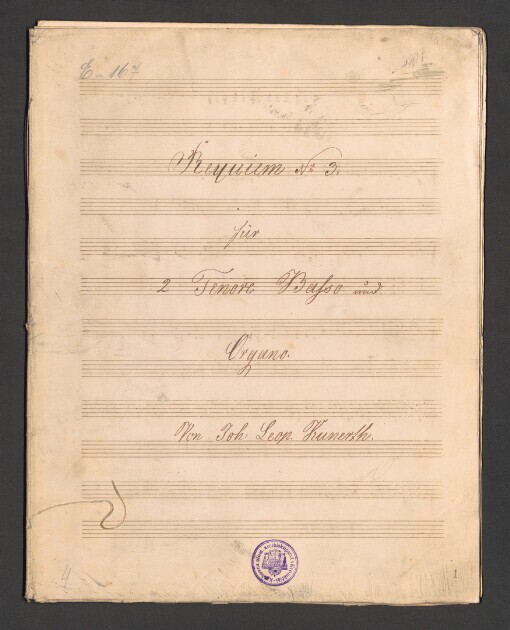 E-167
Requiem No 3.
für
2 Tenore Basso und
Organo.
Von Joh. Leop. Kunerth.
4
1